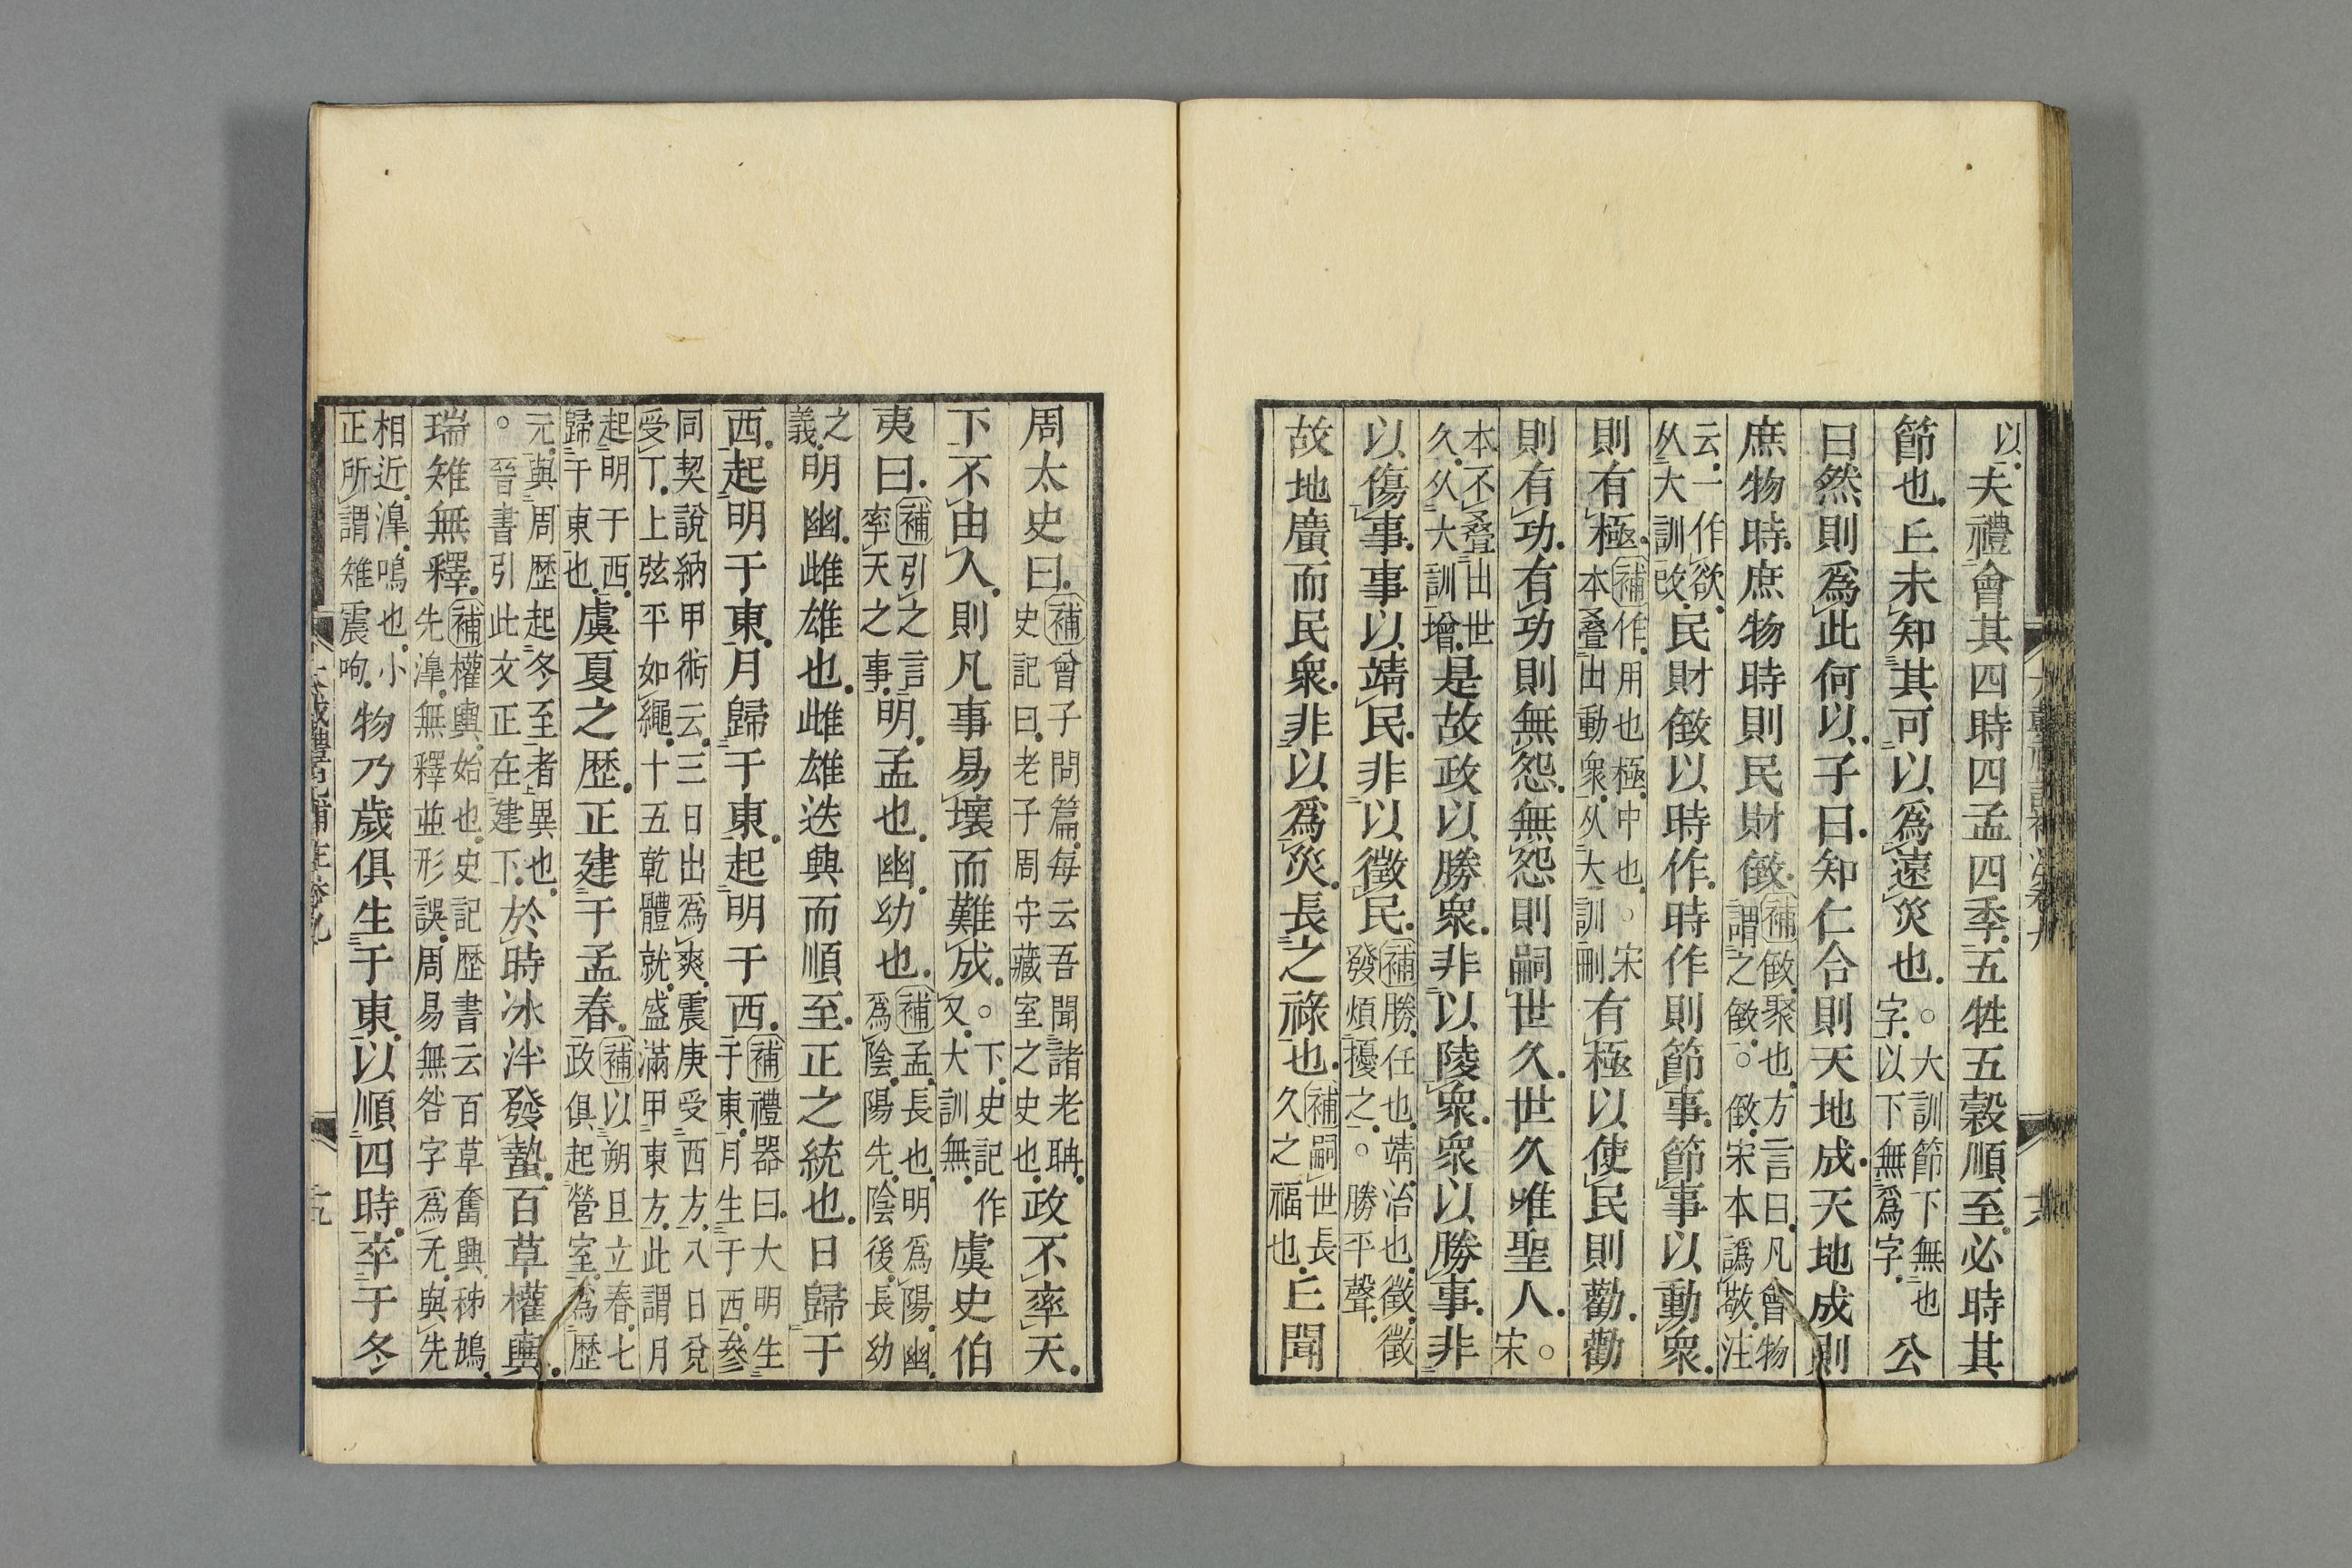 以夫禮會其四時四孟四季五牲五穀順至必時其
節也丘未知其可以爲遠災也○大訓節下無也字以下無爲字公
曰然則爲此何以子曰知仁合則天地成天地成則
庶物時庶物時則民財㪘補㪘聚也方言曰凡會物謂之㪘○㪘宋本譌敬注
云一作欲从大訓改民財㪘以時作時作則節事節事以動衆
則有極補作用也極中也○宋本叠出動衆从大訓刪有極以使民則勸勸
則有功有功則無怨無怨則嗣世久世久唯聖人○宋
本不叠出世久从大訓增是故政以勝衆非以陵衆衆以勝事非
以傷事事以靖民非以徵民補勝任也靖治也徵徵發煩擾之○勝平聲
故地廣而民衆非以爲災長之祿也補嗣世長久之福也丘聞
周太史曰補曾子問篇每云吾聞諸老聃史記曰老子周守藏室之史也政不率天
下不由人則凡事易壞而難成○下史記作又大訓無虞史伯
夷曰補引之言率天之事明孟也幽幼也補孟長也明爲陽幽爲陰陽先陰後長幼
之義明幽雌雄也雌雄迭興而順至正之統也日歸于
西起明于東月歸于東起明于西補禮器曰大明生于東月生于西參
同契說納甲術云三日出爲爽震庚受西方八日兌受丁上弦平如繩十五乾體就盛滿甲東方此謂月
起明于西歸于東也虞夏之歷正建于孟春補以朔旦立春七政俱起營室爲歷
元與周歷起冬至者異也○晉書引此文正在建下於時冰泮發蟄百草權輿
瑞雉無釋補權輿始也史記歷書云百草奮興秭鴂先滜無釋並形誤周易無咎字爲无與先
相近滜鳴也小正所謂雉震呴物乃歲俱生于東以順四時卒于冬